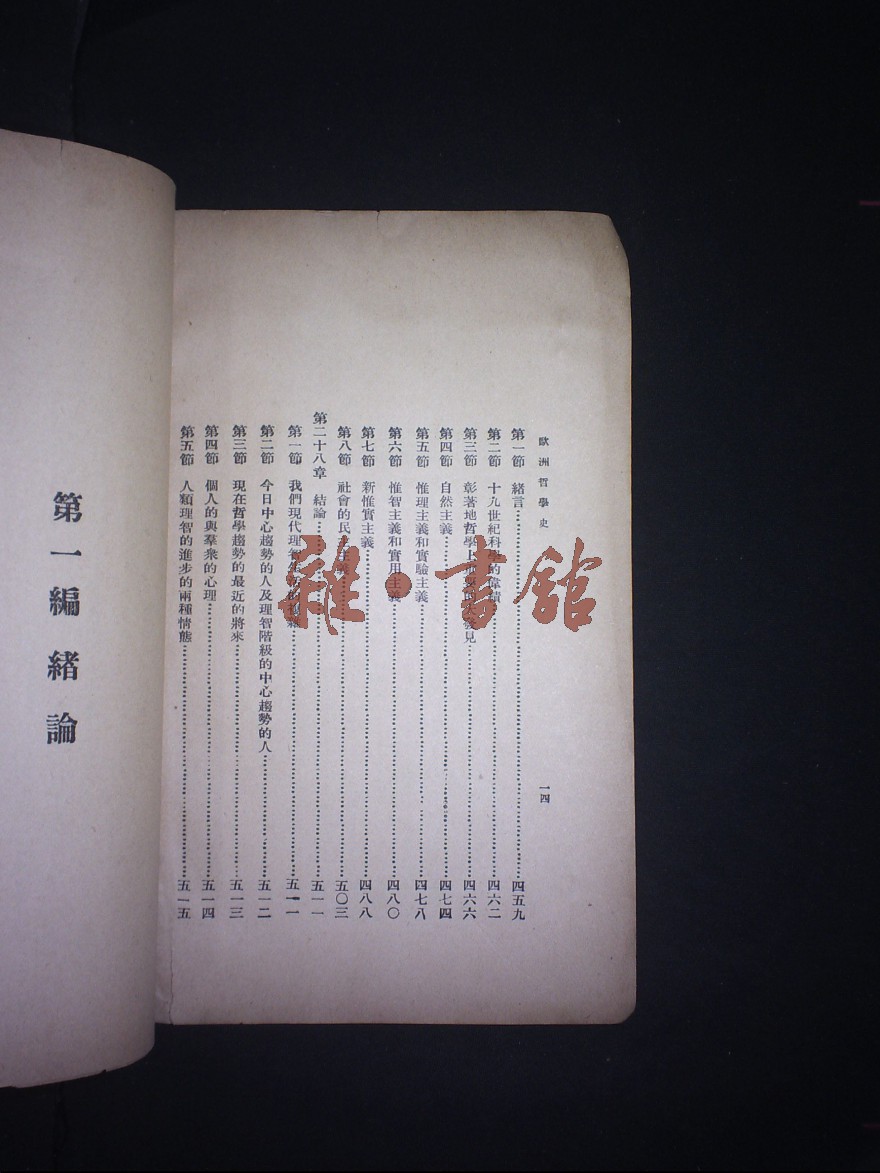 歐洲哲學史
一四
第一節 緒言 四五九
第二節 十九世紀科學的偉績 四六二
第三節 彰著地哲學上 的大發見 四六六
第四節 自然主義 四七四
第五節 惟理主義和實驗主義 四七八
第六節 惟智主義和實用主義 四八〇
第七節 新惟實主義 四八八
第八節 社會的民主主義 五〇三
第二十八章 結論 五一一
第一節 我們現代理智生活的複雜 五一一
第二節 今日中心趨勢的人及理智階級的中心趨勢的人 五一二
第三節 現在哲學趨勢的最近的將來 五一三
第四節 個人的與羣衆的心理 五一四
第五節 人類理智的進步的兩種情態 五一五
第一編 緒論
雜·書館